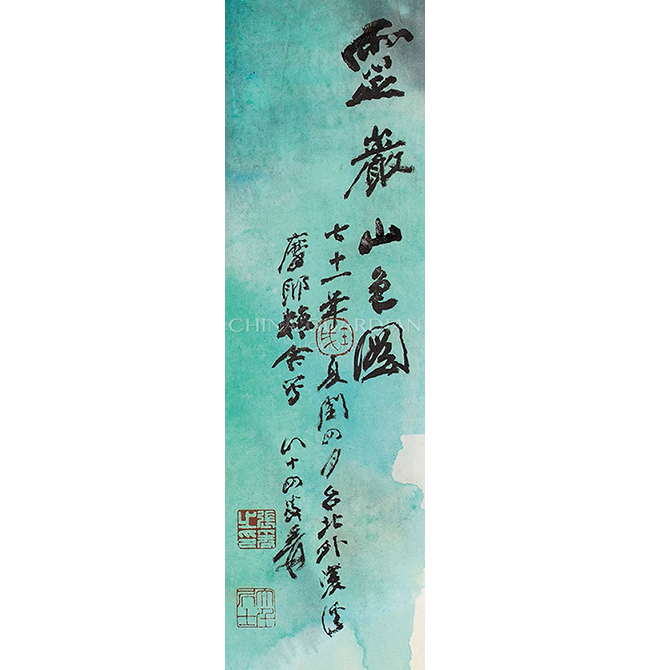 靈巖山色圖
七十一年夏閏四月台北外雙溪
摩耶精舍寫 八十四叟爰
壬戌
張爰之印
大千居士
CHINA GUARDIAN